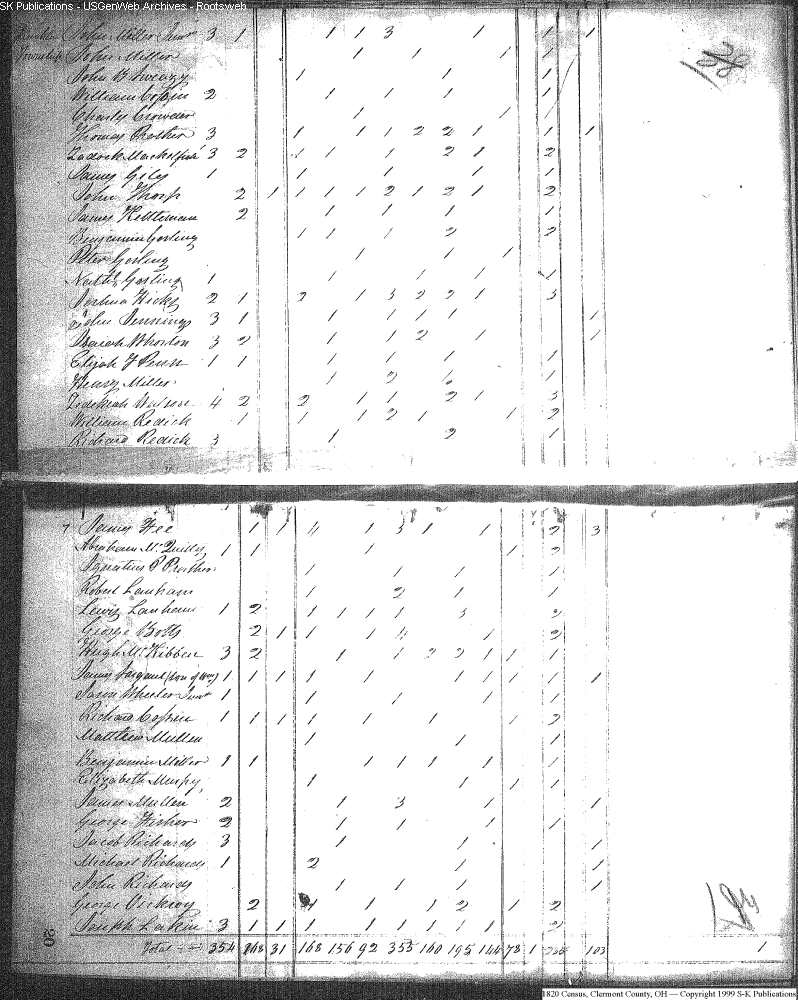 SK Publications - USGenWeb Archives - Rootsweb
John Miller Junr 3 1 1 1 3 1 1 1
Township John Miller 1 1 1 1
John B Swezy 1 1 1
William 2 1 1 1 1
Charly Crowder 1 1
Thomas Prather 3 1 1 1 2 2 1 1 1
Zadock 3 2 1 1 1 2 1 2
James 1 1 1 1 1
John Thorp 2 1 1 1 1 2 1 2 1 2
James Kettleman 2 1 1 1 1
Benjamin Gosling 1 1 1 2 2
Peter Gosling 1 1 1
Gosling 1 1 1 1 1
Joshua Hicks 2 1 2 1 3 2 2 1 3
John Jennings 3 1 1 1 1 1 1
3 2 1 1 2 1 1
Elijah F Penn 1 1 1 1 1 1
Henry Miller 1 2 1
Zedekiah Watson 4 2 2 1 1 2 1 3
William Redick 1 1 1 2 1 1 2
Richard Redick 3 1 2 1
28
7 James Fee 1 1 4 1 3 1 1 2 3
Abraham 1 1 1 1 2
Ignatius P Prather 1 1 1 1
Robert Lanham 1 2 1 1
Lewis Lanham 1 2 1 1 1 1 3 2
George 2 1 1 1 4 1 2
Hugh McKibben 3 2 1 1 2 2 1 1 1
James Sargent (son of Wm) 1 1 1 1 1 1 1 1 1 1
Jason Wheeler Junr 1 1 1 1 1
Richard 1 1 1 1 1 1 1 2
Matthew Mullen 1 1 1
Benjamin Miller 1 1 1 1 1 1 1
Elizabeth 1 1 1 1
James Mullen 2 1 3 1 1
George Fisher 2 1 1 1 1
Jacob Richards 3 1 1 1
Michael Richards 1 2 1 1
John Richards 1 1 1 1
George 2 1 1 2 1 2
Joseph Larkin 3 1 1 1 1 1 1 1 1 2
20
Total 354 168 31 168 156 92 355 160 195 144 78 1 103 1
1820 Census, Clermont County, OH — Copyright 1999 S-K Publications